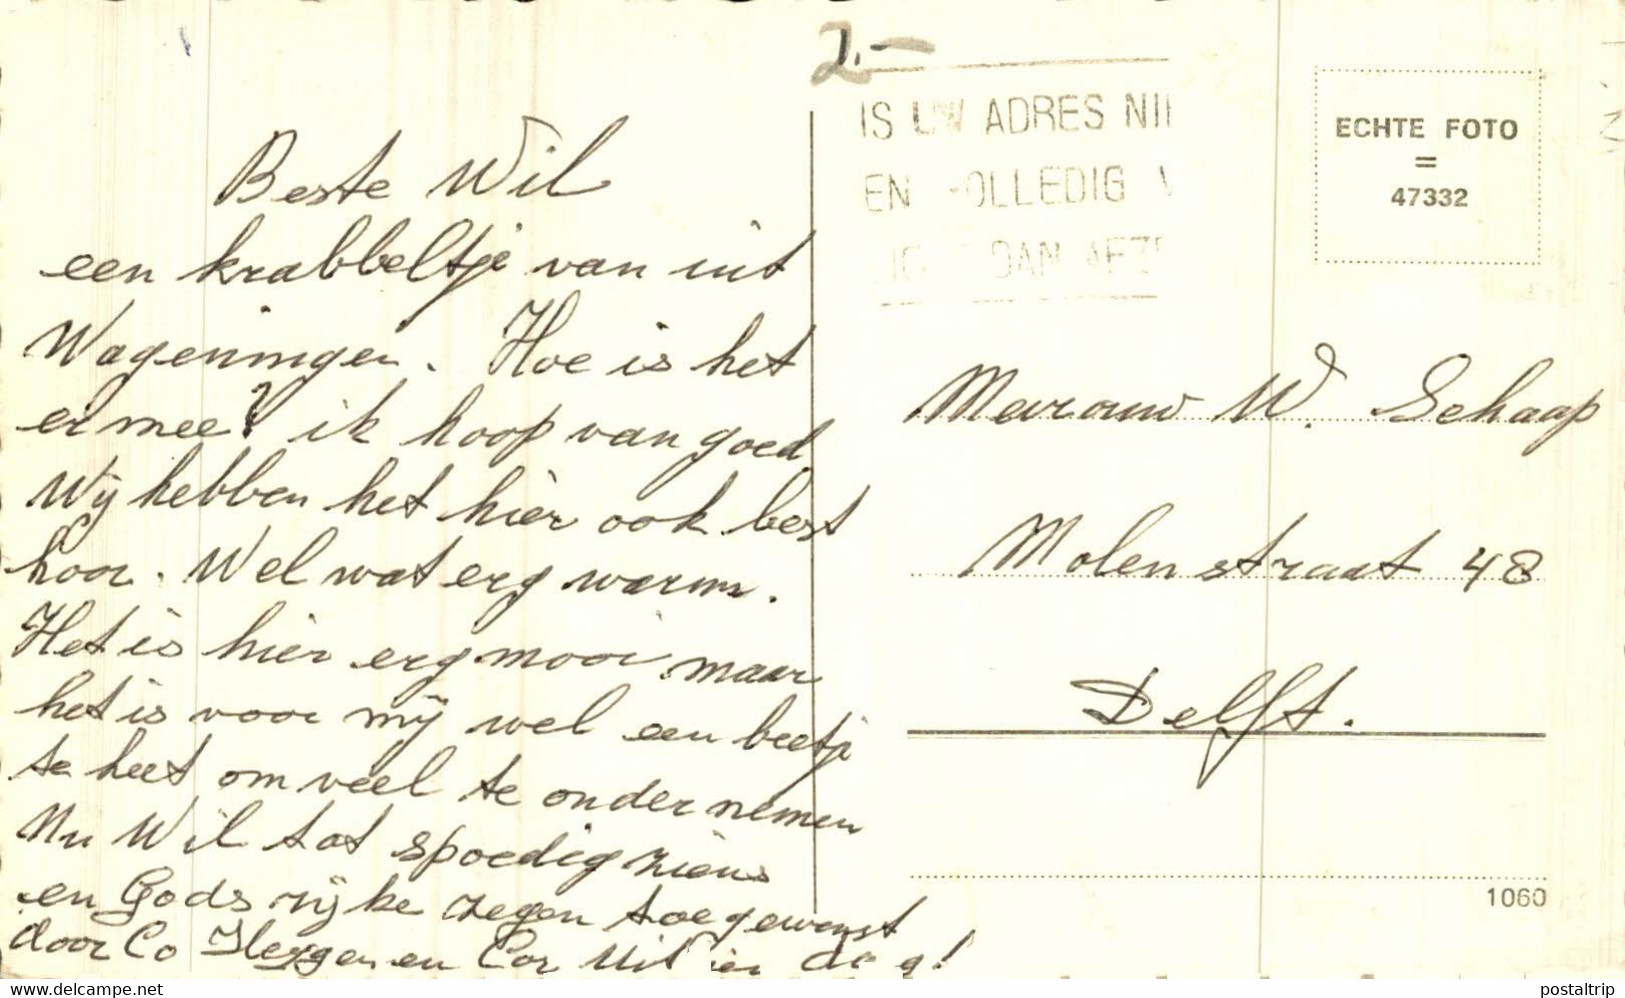 2.-
Beste Wil
een krabbeltje van uit
Wageningen. Hoe is het
er mee? ik hoop van goed
Wij hebben het hier ook best
hoor. Wel wat erg warm.
Het is hier erg mooi maar
het is voor mij wel een beetje
te heet om veel te ondernemen
Nu Wil tot spoedig ziens
en Gods rijke zegen toegewenst
door Co en Cor dag!
IS UW ADRES NI
EN OLLEDIG
DAN
ECHTE FOTO
=
47332
Mevrouw W. Schaap
Molenstraat 48
Delft.
1060
www.delcampe.net
postaltrip